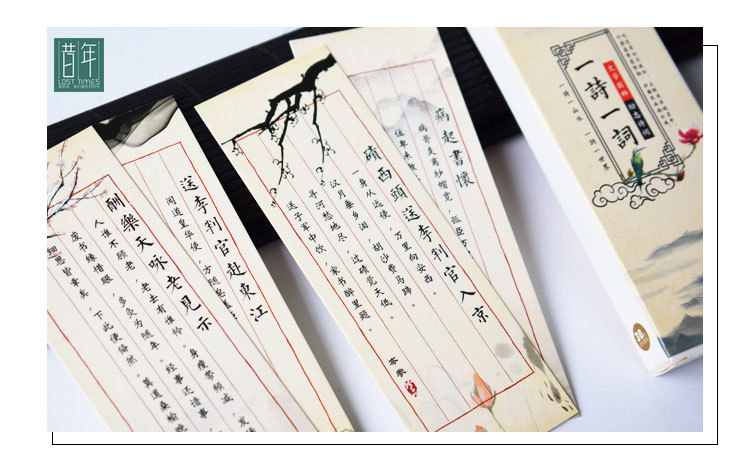 昔年
LOST TIMES
一詩一詞
文字圖解
勵志詩詞
一詩一山水 一詞一世界
病起書懷
病骨支離紗帽寬
磧西頭送李判官入京
一身从远使,万里向安西。
汉月垂乡泪,胡沙费马蹄。
寻河愁地尽,过碛觉天低。
送子军中饮,家书醉里题。
岑參
送李判官赴東江
闻道皇华使,方随
酬樂天咏老見示
人谁不顾老,老去有谁怜。
身瘦带频减,发
废书缘惜眼,多灸为随年。
经事还谙事,
细思皆幸矣,下此便翛然。
莫道桑榆晚
30